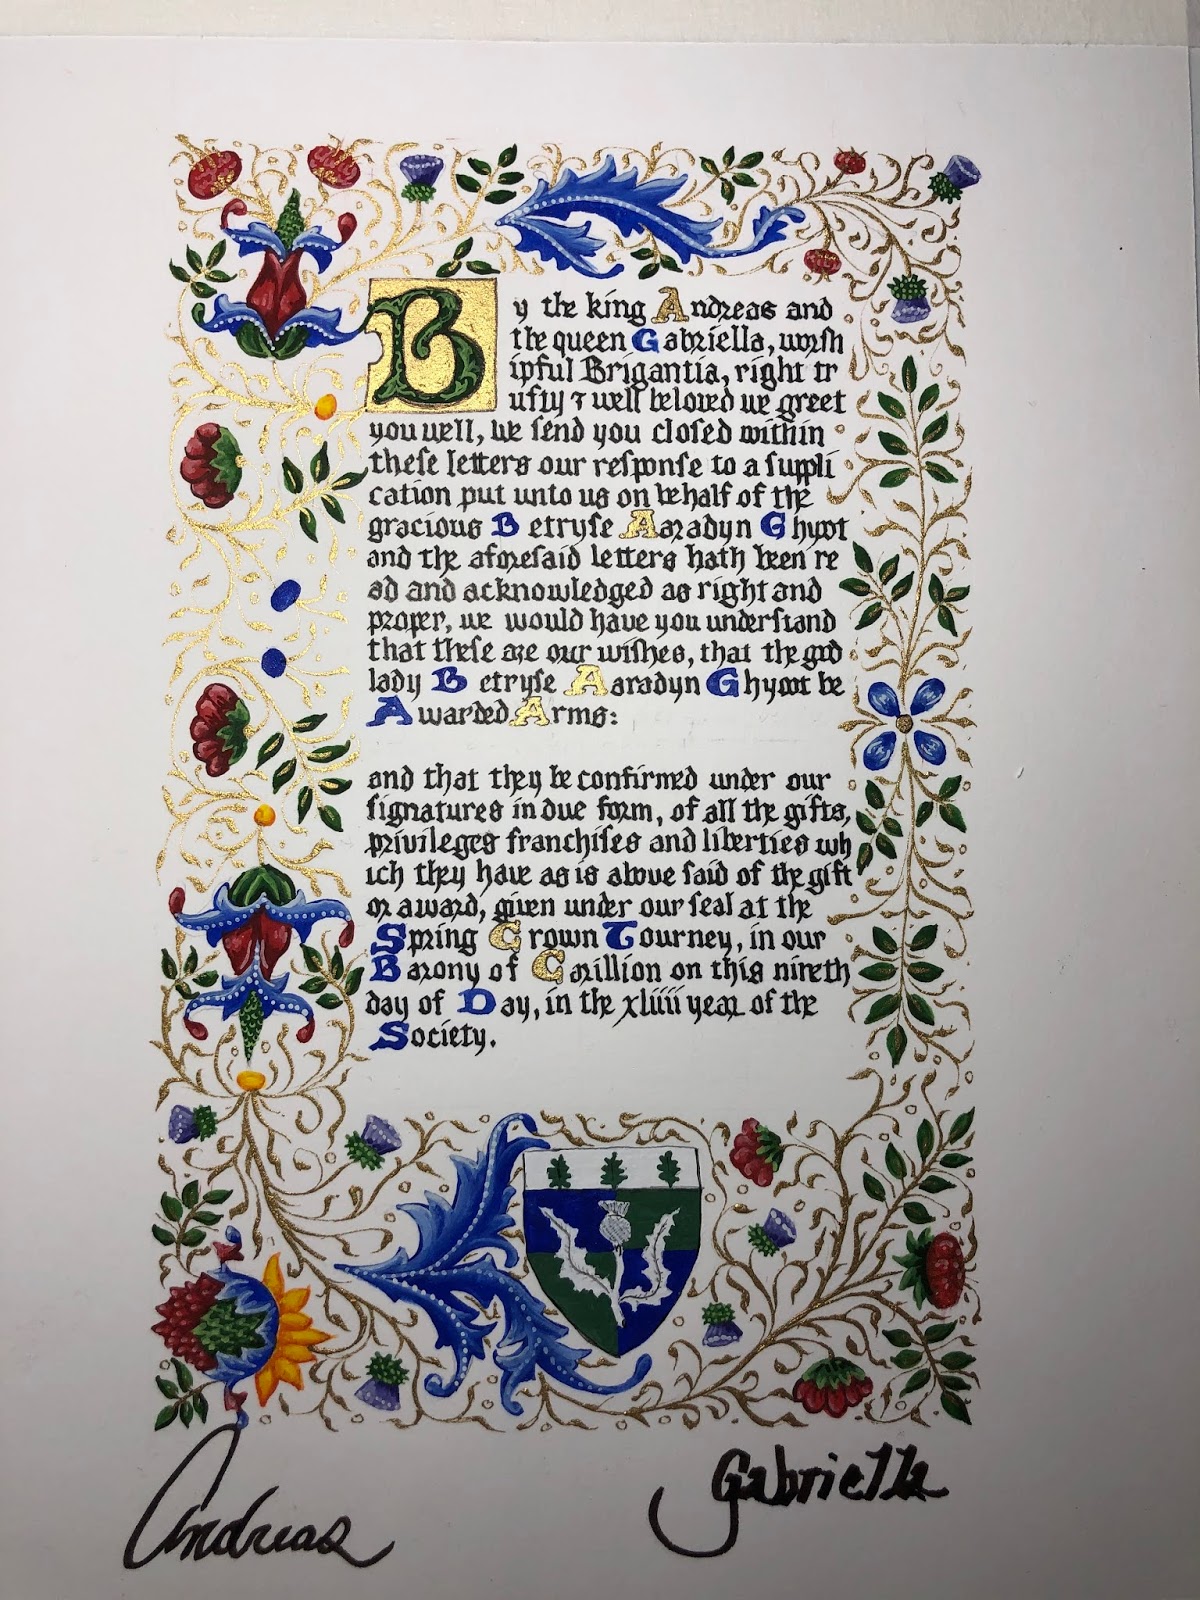 By the king Andreas and
the queen Gabriella, worsh
ipful Brigantia, right tr
uſty & well beloved we greet
you well, we ſend you cloſed within
theſe letters our reſponſe to a ſuppli
cation put unto us on behalf of the
gracious Betryſe Aaradyn Ghyoot
and the aforeſaid letters hath been re
ad and acknowledged as right and
proper, we would have you underſtand
that theſe are our wiſhes, that the good
lady Betryſe Aaradyn Ghyoot be
Awarded Arms:
and that they be confirmed under our
ſignatures in due form, of all the gifts,
privileges franchiſes and liberties wh
ich they have as is above ſaid of the gift
or award, given under our ſeal at the
Spring Crown Tourney, in our
Barony of Carillion on this
day of Day, in the xliiii year of the
Society.
Andreas
Gabriella